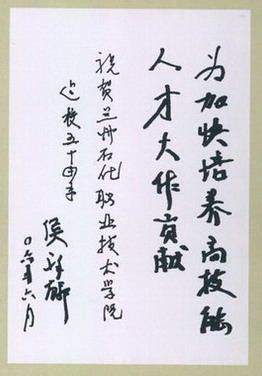 为加快培养高技能
人才大作贡献
祝贺兰州石化职业技术学院
建校五十周年
侯
〇六年六月